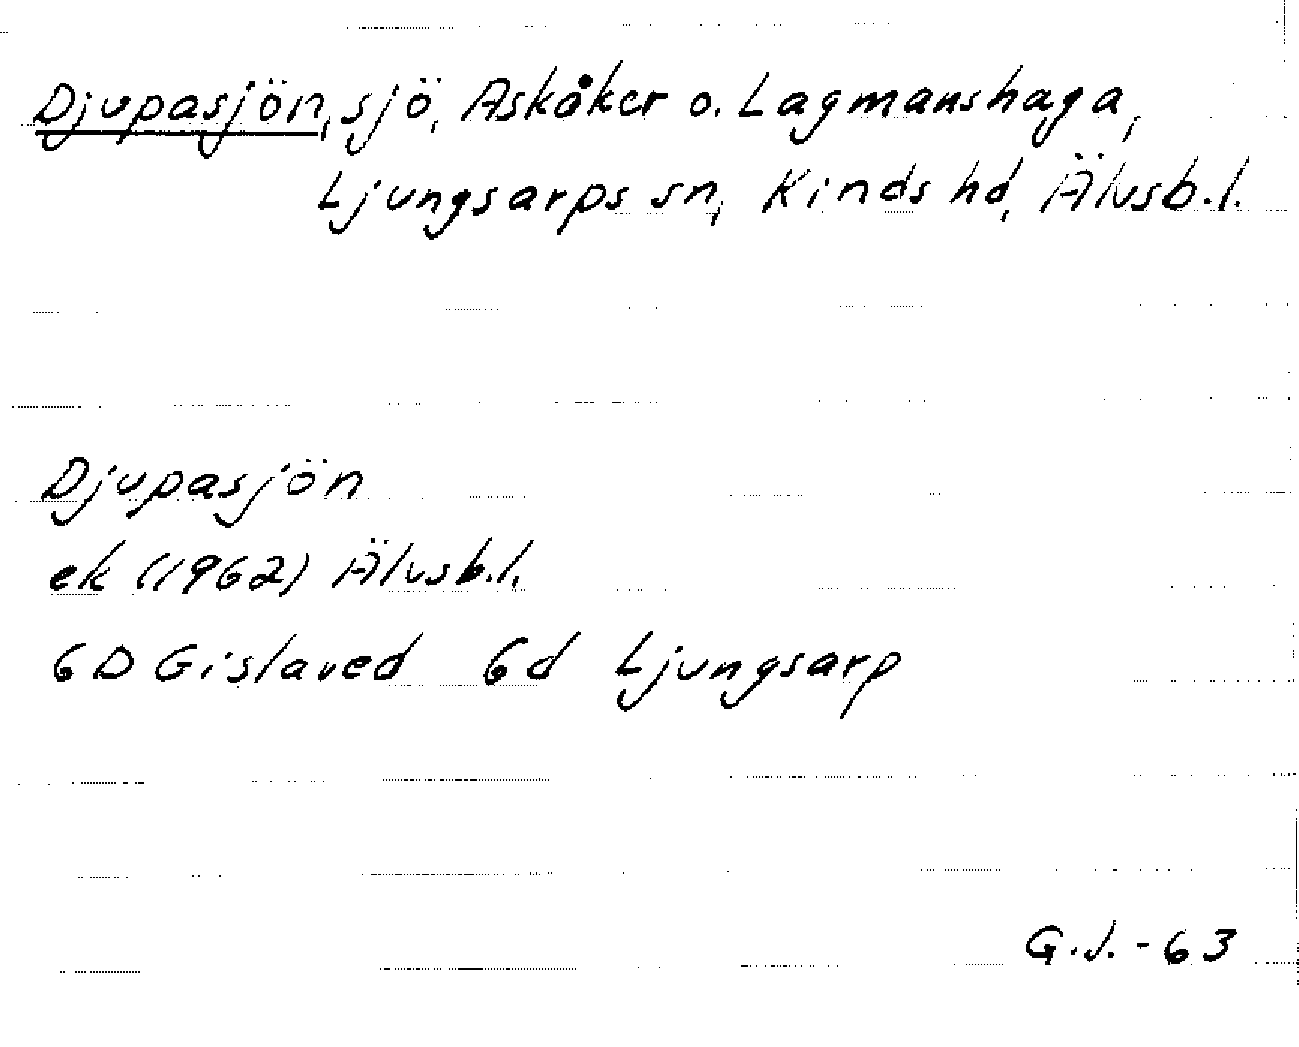 Djupasjön, sjö, Askåker o. Lagmanshaga,
Ljungsarps sn, Kinds hd, Älvsb.l.
Djupasjön
ek (1962) Älvsb.l.
6D Gislaved 6d Ljungsarp
G.J.-63